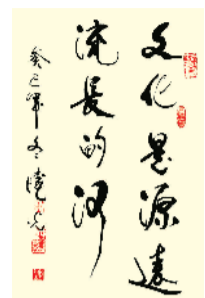 文化是源遠
流長的河
癸巳年冬曉光